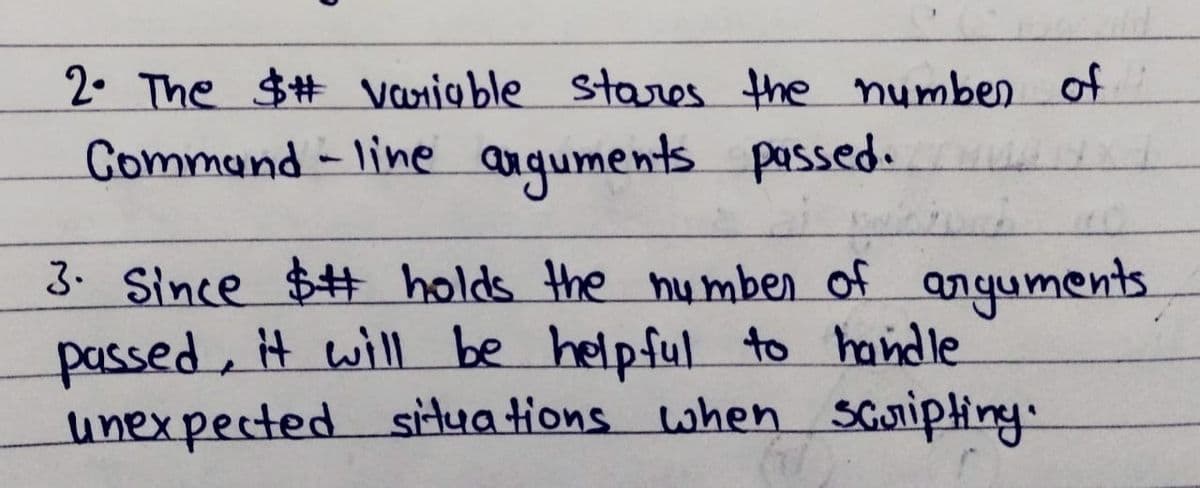 2. The $# variable stores the number of
Command-line arguments passed.
3. Since $# holds the number of arguments
passed, it will be helpful to handle
unexpected situations when scripting.